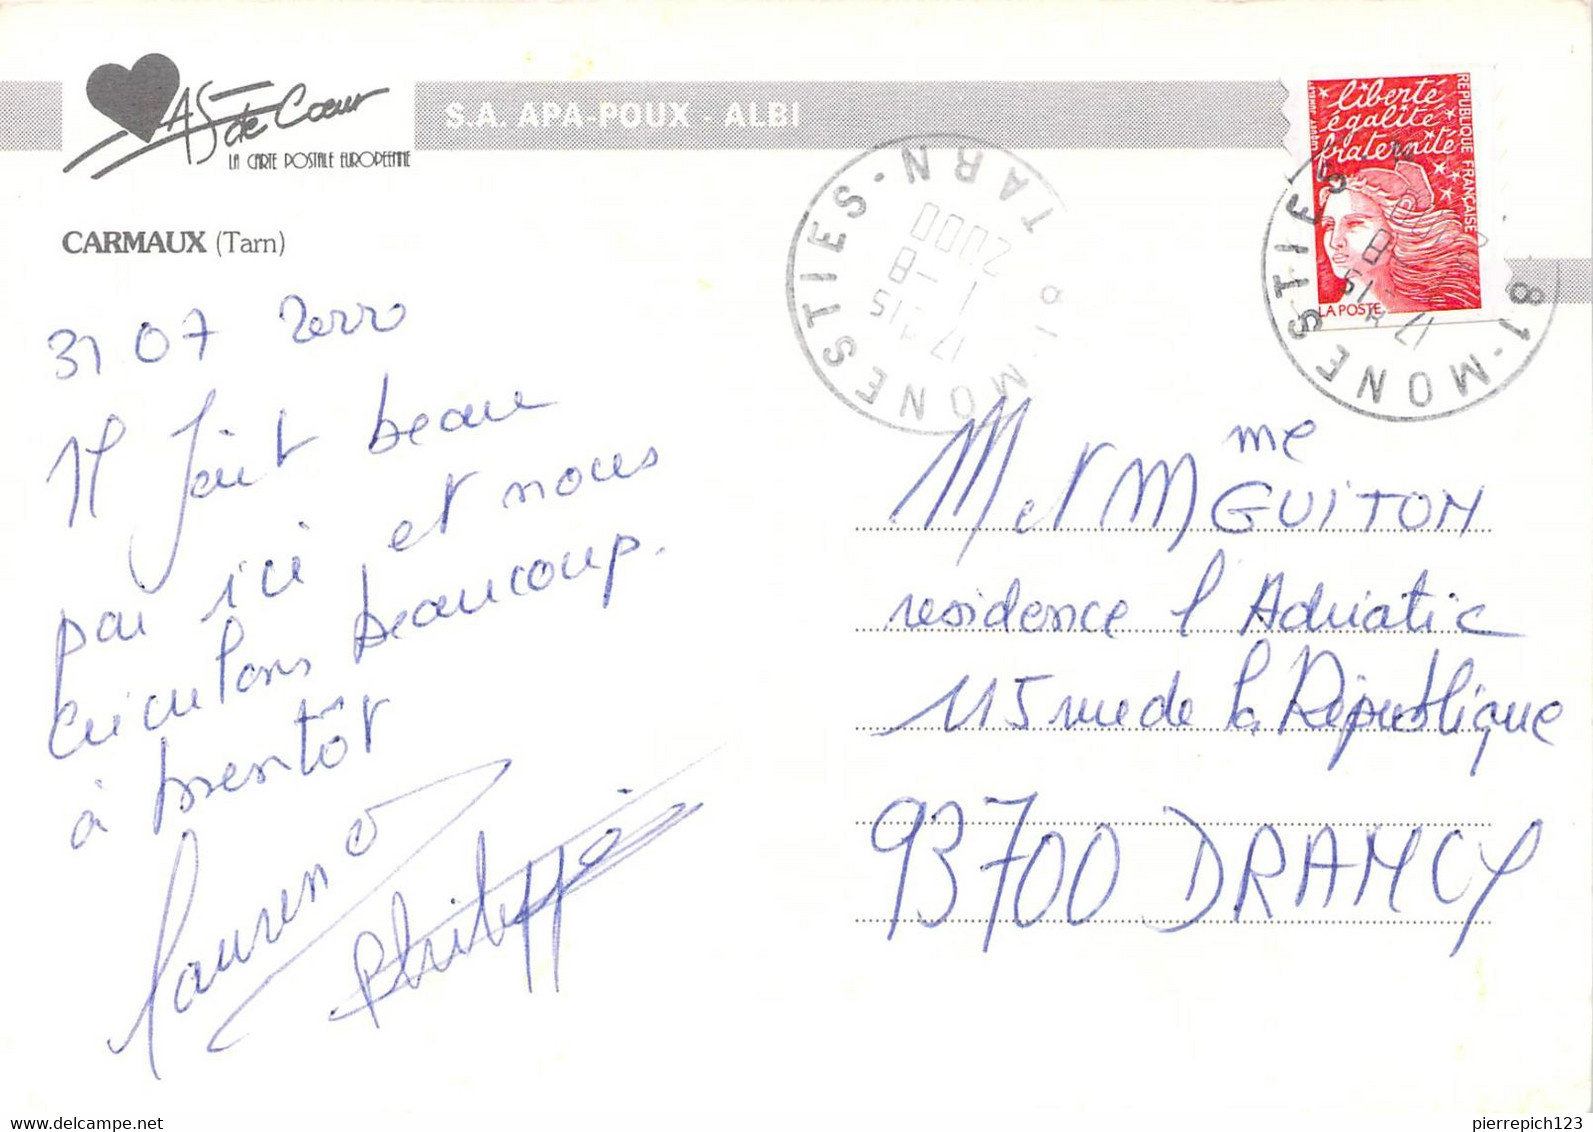 AS de Cœur
LA CARTE POSTALE EUROPEENNE
S.A. APA-POUX - ALBI
CARMAUX (Tarn)
31 07 2000
Il fait beau
par ici et nous
circulons beaucoup.
à bientôt
Laurence
Philippe
81-MONESTIES-TARN
17H15
1-8
2000
liberté
égalité
fraternité
REPUBLIQUE FRANÇAISE
LA POSTE
81-MONESTIES
17H15
M et Mme GUITON
residence l'Adriatic
115 rue de la République
93700 DRANCY
pierrepich123